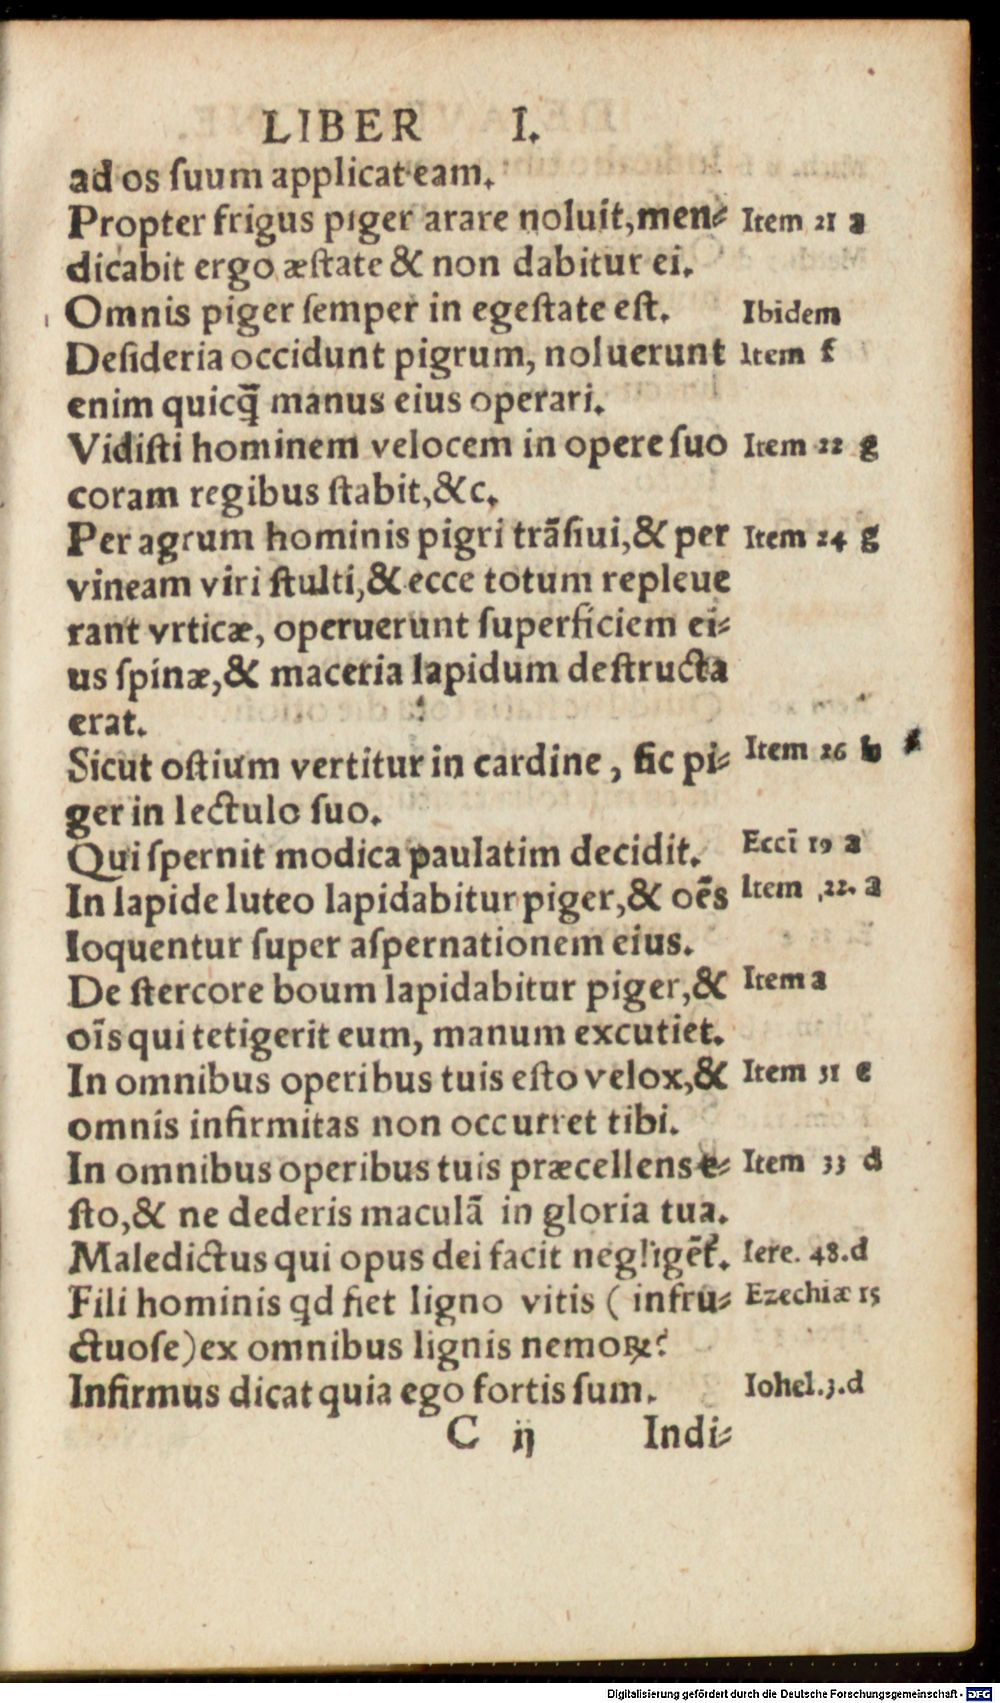 LIBER I.
ad os ſuum applicat eam.
Propter frigus piger arare noluit, men⸗ Item 21 a
dicabit ergo æſtate & non dabitur ei.
Omnis piger ſemper in egeſtate eſt. Ibidem
Deſideria occidunt pigrum, noluerunt Item f
enim quicq̃ manus eius operari.
Vidiſti hominem velocem in opere ſuo Item 22 g
coram regibus ſtabit, &c.
Per agrum hominis pigri trãſiui, & per Item 24 g
vineam viri ſtulti, & ecce totum repleue
rant vrticæ, operuerunt ſuperficiem ei⸗
us ſpinæ, & maceria lapidum deſtructa
erat.
Sicut oſtium vertitur in cardine, ſic pi⸗ Item 26 b
ger in lectulo ſuo.
Qui ſpernit modica paulatim decidit. Eccĩ 19 a
In lapide luteo lapidabitur piger, & oẽs Item ,22. a
loquentur ſuper aſpernationem eius.
De ſtercore boum lapidabitur piger, & Item a
oĩs qui tetigerit eum, manum excutiet.
In omnibus operibus tuis eſto velox, & Item 31 e
omnis infirmitas non occurret tibi.
In omnibus operibus tuis præcellens e⸗ Item 33 d
ſto, & ne dederis maculã in gloria tua.
Maledictus qui opus dei facit negligẽt́. Iere. 48.d
Fili hominis qd fiet ligno vitis (infru⸗ Ezechiæ 15
ctuoſe) ex omnibus lignis nemoꝝ?
Infirmus dicat quia ego fortis ſum. Iohel.3.d
C ij Indi⸗
Digitalisierung gefördert durch die Deutsche Forschungsgemeinschaft - DFG